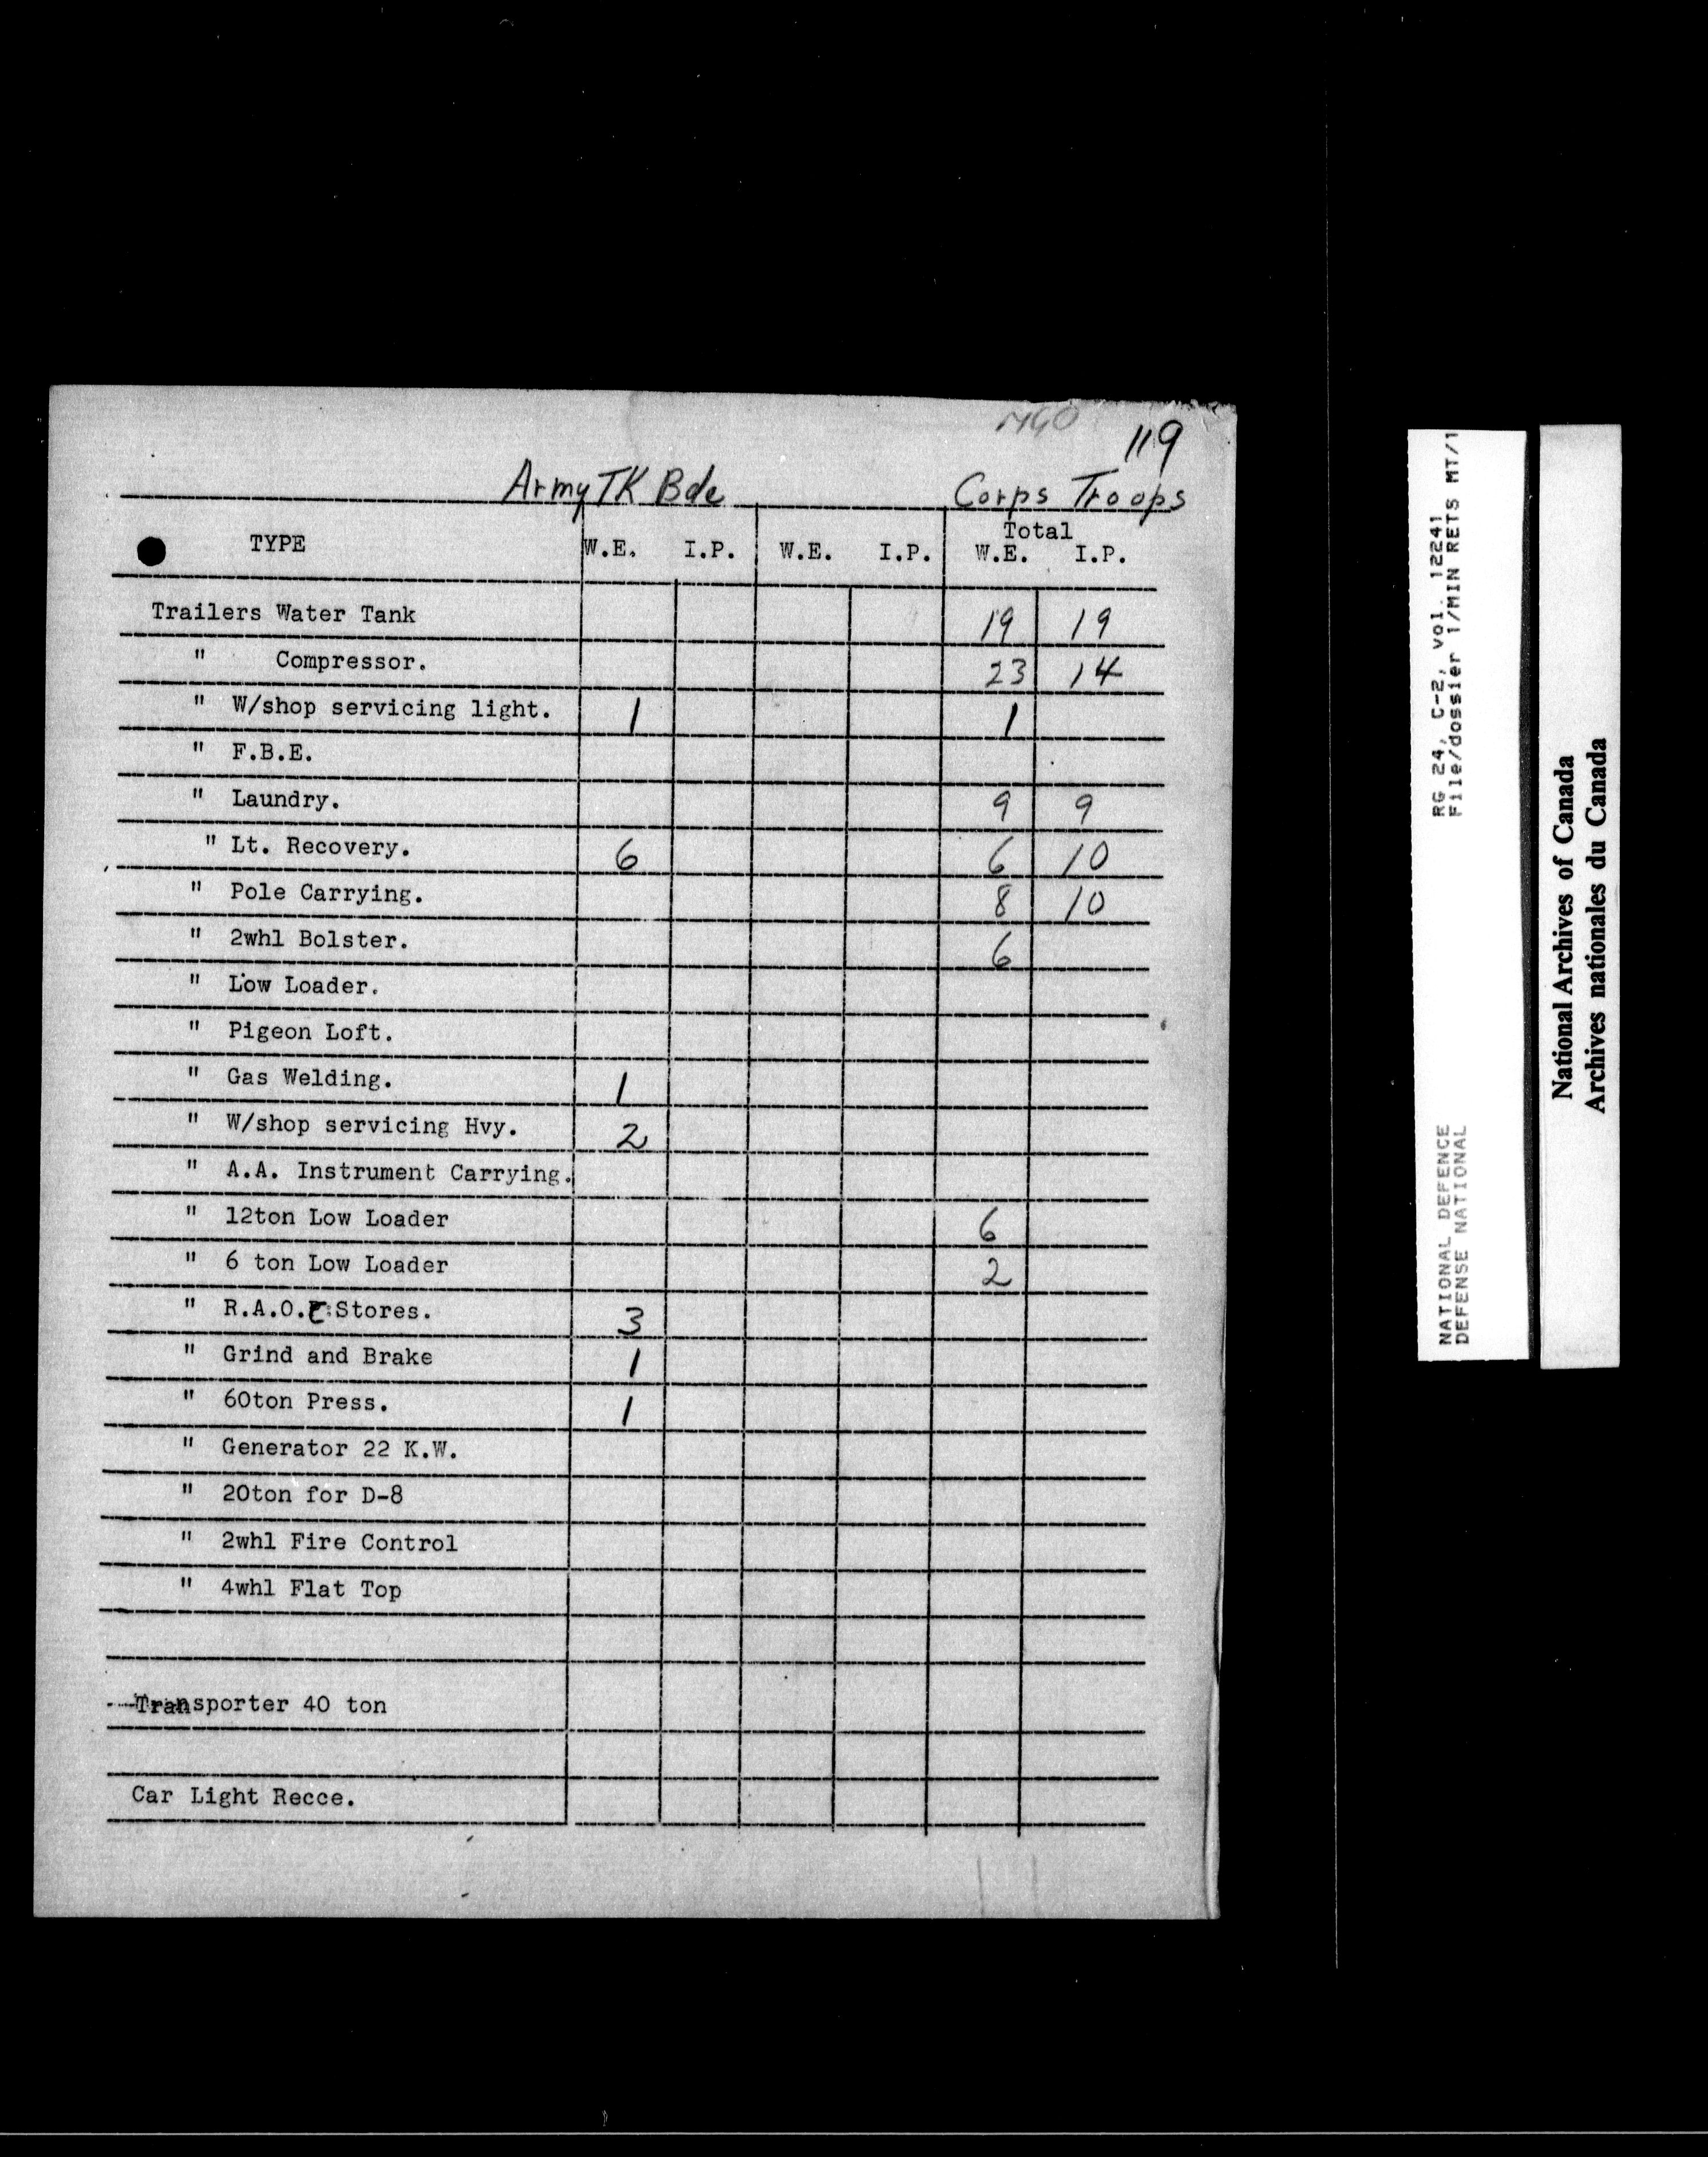 MGO
119
Army TK Bde Corps Troops
TYPE W.E. I.P. W.E. I.P. Total W.E. I.P.
Trailers Water Tank 19 19
" Compressor. 23 14
" W/shop servicing light. 1 1
" F.B.E.
" Laundry. 9 9
" Lt. Recovery. 6 6 10
" Pole Carrying. 8 10
" 2whl Bolster. 6
" Low Loader.
" Pigeon Loft.
" Gas Welding. 1
" W/shop servicing Hvy. 2
" A.A. Instrument Carrying.
" 12ton Low Loader 6
" 6 ton Low Loader 2
" R.A.O.C. Stores. 3
" Grind and Brake 1
" 60ton Press. 1
" Generator 22 K.W.
" 20ton for D-8
" 2whl Fire Control
" 4whl Flat Top
Transporter 40 ton
Car Light Recce.
NATIONAL DEFENCE RG 24, C-2, vol. 12241
DEFENSE NATIONAL File/dossier 1/MIN RETS MT/1
National Archives of Canada
Archives nationales du Canada